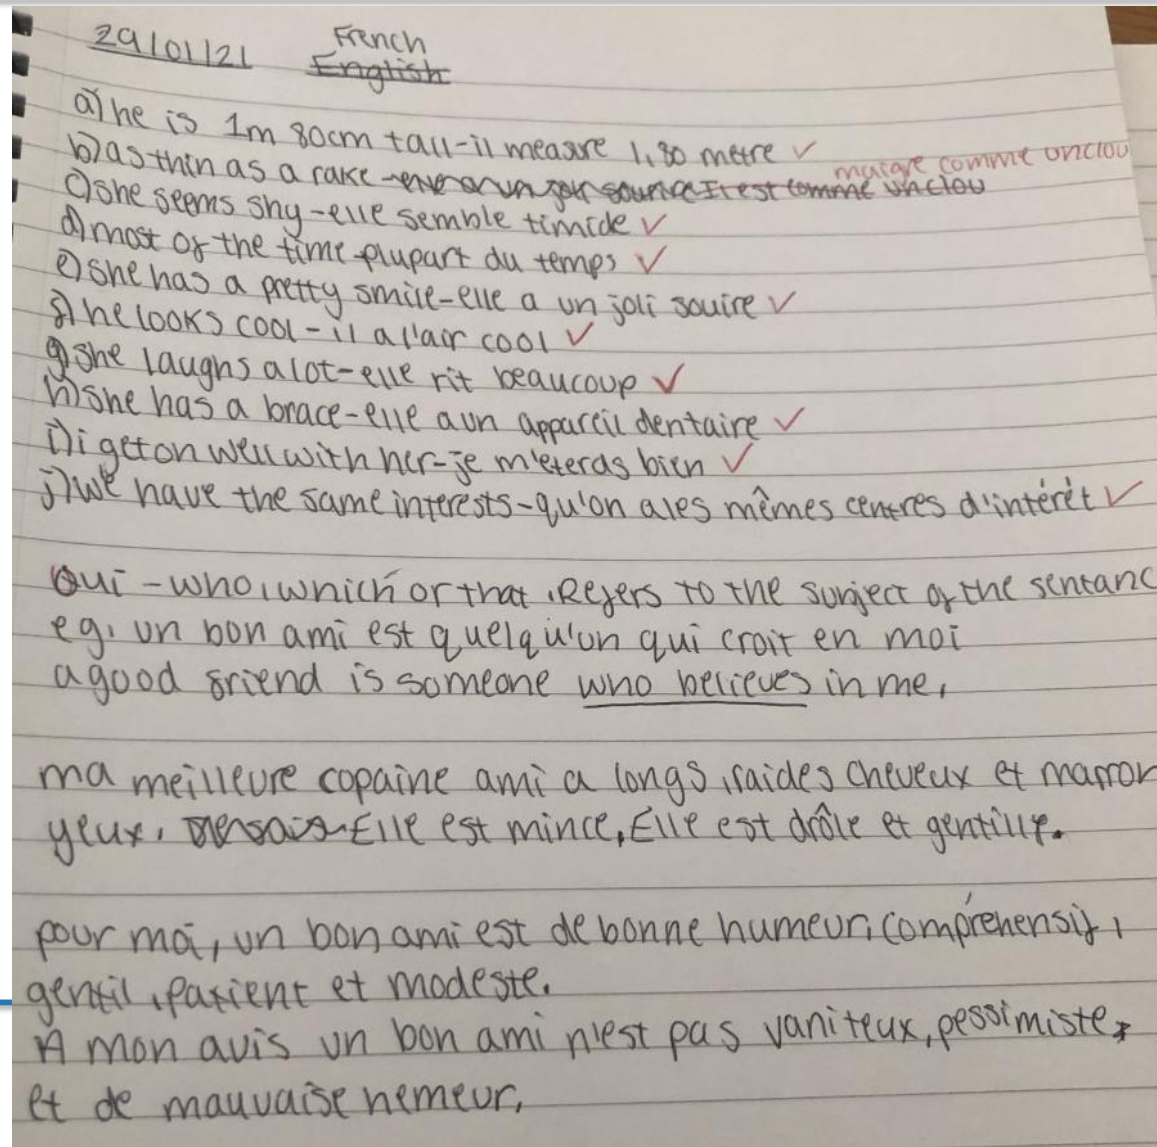 29/01/21 French
English
a) he is 1m 80cm tall-il measure 1,80 metre ✓
maigre comme unclou
b) as thin as a rake - Il est comme un clou
c) she seems shy-elle semble timide ✓
d) most of the time-plupart du temps ✓
e) she has a pretty smile-elle a un joli souire ✓
f) he looks cool-il a l'air cool ✓
g) she laughs a lot-elle rit beaucoup ✓
h) she has a brace-elle a un appareil dentaire ✓
i) i get on well with her-je m'eteras bien ✓
j) we have the same interests-qu'on a les mêmes centres d'intérét ✓
Qui - who, which or that. Refers to the sunject of the sentanc
eg. un bon ami est quelqu'un qui croit en moi
a good friend is someone who believes in me.
ma meilleure copaine ami a longs, raides cheveux et marron
yeux. Elle est mince, Elle est drôle et gentille.
pour moi, un bon ami est de bonne humeur, compréhensif,
gentil, patient et modeste.
A mon avis un bon ami n'est pas vaniteux, pessimiste,
et de mauvaise hemeur.